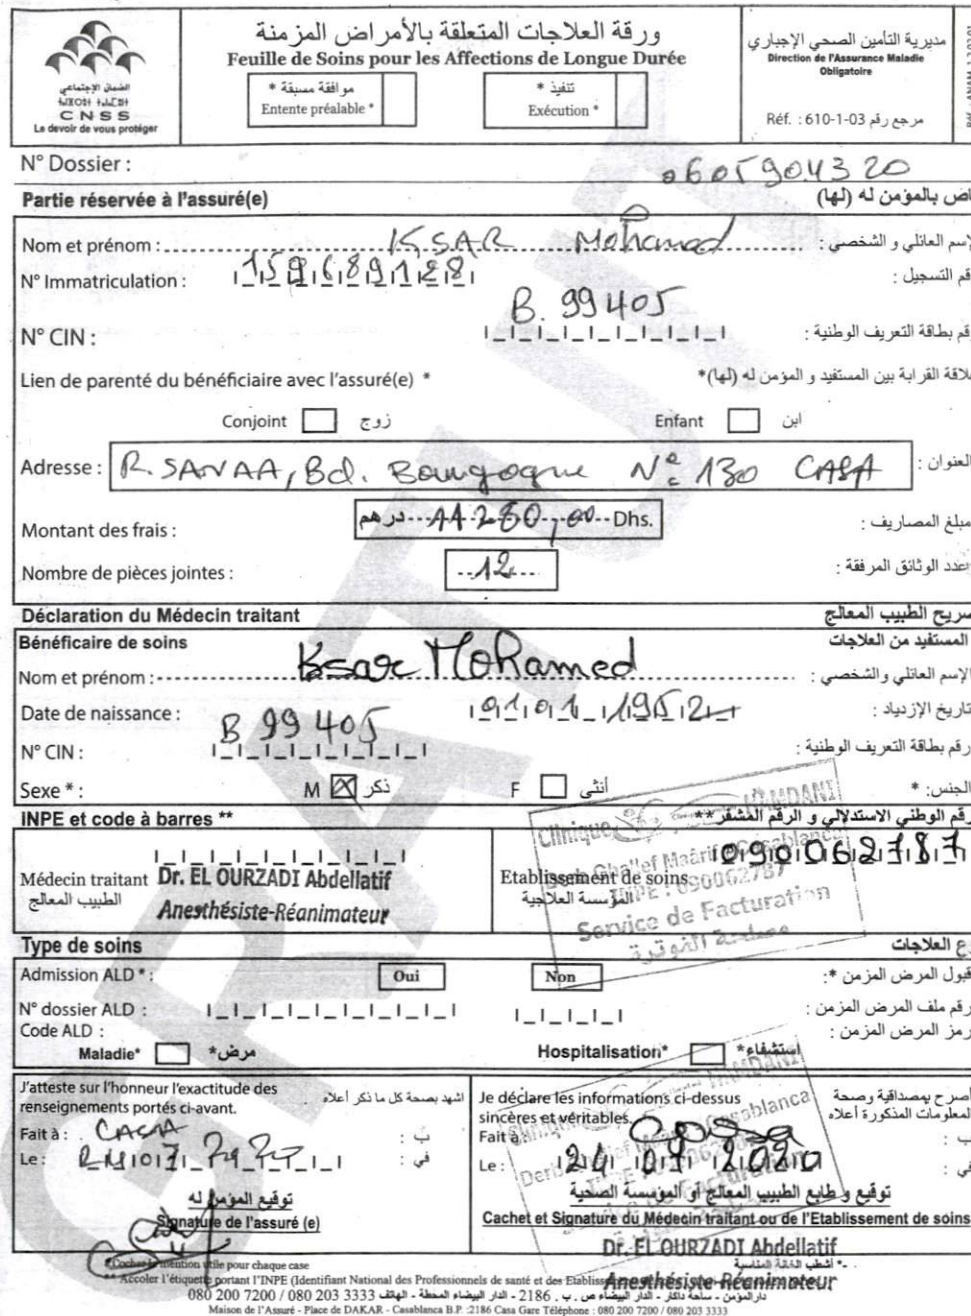 ورقة العلاجات المتعلقة بالأمراض المزمنة
Feuille de Soins pour les Affections de Longue Durée
الضمان الإجتماعي
CNSS
Le devoir de vous protéger
موافقة مسبقة *
Entente préalable *
تنفيذ *
Exécution *
مديرية التأمين الصحي الإجباري
Direction de l'Assurance Maladie
Obligatoire
Réf. : 610-1-03 مرجع رقم
N° Dossier : 0605904320
Partie réservée à l'assuré(e) اص بالمؤمن له (لها)
Nom et prénom : KSAR Mohamed إسم العائلي و الشخصي :
N° Immatriculation : 159689128 قم التسجيل :
N° CIN : B. 99405 قم بطاقة التعريف الوطنية :
Lien de parenté du bénéficiaire avec l'assuré(e) * لاقة القرابة بين المستفيد و المؤمن له (لها)*
Conjoint زوج Enfant ابن
Adresse : R. SANAA, Bd. Bourgogne N° 130 CASA العنوان :
Montant des frais : درهم Dhs. مبلغ المصاريف :
Nombre de pièces jointes : 12 عدد الوثائق المرفقة :
Déclaration du Médecin traitant سريح الطبيب المعالج
Bénéficaire de soins المستفيد من العلاجات
Nom et prénom : Ksar Mohamed الإسم العائلي والشخصي :
Date de naissance : 01011952 تاريخ الإزدياد :
N° CIN : B 99405 رقم بطاقة التعريف الوطنية :
Sexe * : M ذكر F أنثى الجنس: *
INPE et code à barres ** رقم الوطني الاستدلالي و الرقم المشفر**
Médecin traitant Dr. EL OURZADI Abdellatif
الطبيب المعالج Anesthésiste-Réanimateur
Etablissement de soins 090062787
المؤسسة العلاجية
Clinique HAMDANI
Derb Ghallef Maârif Casablanca
INPE : 090062787
Service de Facturation
مصلحة الفوترة
Type de soins ع العلاجات
Admission ALD * : Oui Non قبول المرض المزمن *:
N° dossier ALD : رقم ملف المرض المزمن :
Code ALD : رمز المرض المزمن :
Maladie* مرض* Hospitalisation* إستشفاء*
J'atteste sur l'honneur l'exactitude des
renseignements portés ci-avant.
اشهد بصحة كل ما ذكر أعلاه
Fait à : CASA ب :
Le : في :
توقيع المؤمن له
Signature de l'assuré (e)
Je déclare les informations ci-dessus
sincères et véritables.
اصرح بمصداقية وصحة
المعلومات المذكورة أعلاه
Fait à : Casa ب :
Le : 24 07 2020 في :
توقيع و طابع الطبيب المعالج أو المؤسسة الصحية
Cachet et Signature du Médecin traitant ou de l'Etablissement de soins
Dr. EL OURZADI Abdellatif
Anesthésiste-Réanimateur
*Cocher la mention utile pour chaque case *- أشطب الخانة المناسبة
** Accoler l'étiquette portant l'INPE (Identifiant National des Professionnels de santé et des Etablis
دار المؤمن - ساحة داكار - الدار البيضاء ص . ب . 2186 - الدار البيضاء المحطة - الهاتف 3333 203 080 / 7200 200 080
Maison de l'Assuré - Place de DAKAR - Casablanca B.P. :2186 Casa Gare Téléphone : 080 200 7200 / 080 203 3333
GRATUIT